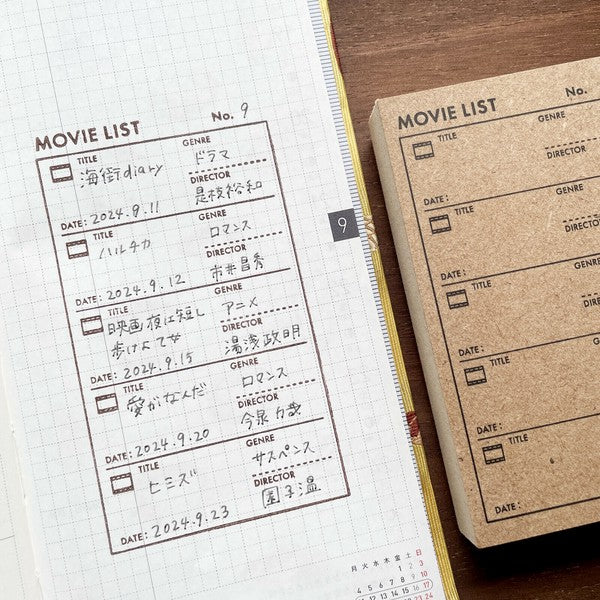 MOVIE LIST
No. 9
TITLE
海街diary
GENRE
ドラマ
DIRECTOR
是枝裕和
DATE: 2024.9.11
TITLE
ハルチカ
GENRE
ロマンス
DIRECTOR
市井昌秀
DATE: 2024.9.12
TITLE
映画 夜は短し
歩けよ乙女
GENRE
アニメ
DIRECTOR
湯浅政明
DATE: 2024.9.15
TITLE
愛がなんだ
GENRE
ロマンス
DIRECTOR
今泉力哉
DATE: 2024.9.20
TITLE
ヒミズ
GENRE
サスペンス
DIRECTOR
園子温
DATE: 2024.9.23
9
月 火 水 木 金 土 日
1 2 3
4 5 6 7 8 9 10
16 17
23 24
MOVIE LIST
No.
TITLE
GENRE
DIRECTOR
DATE:
TITLE
GENRE
DIRECTOR
DATE:
TITLE
DATE:
TITLE
DATE:
TITLE
DATE: